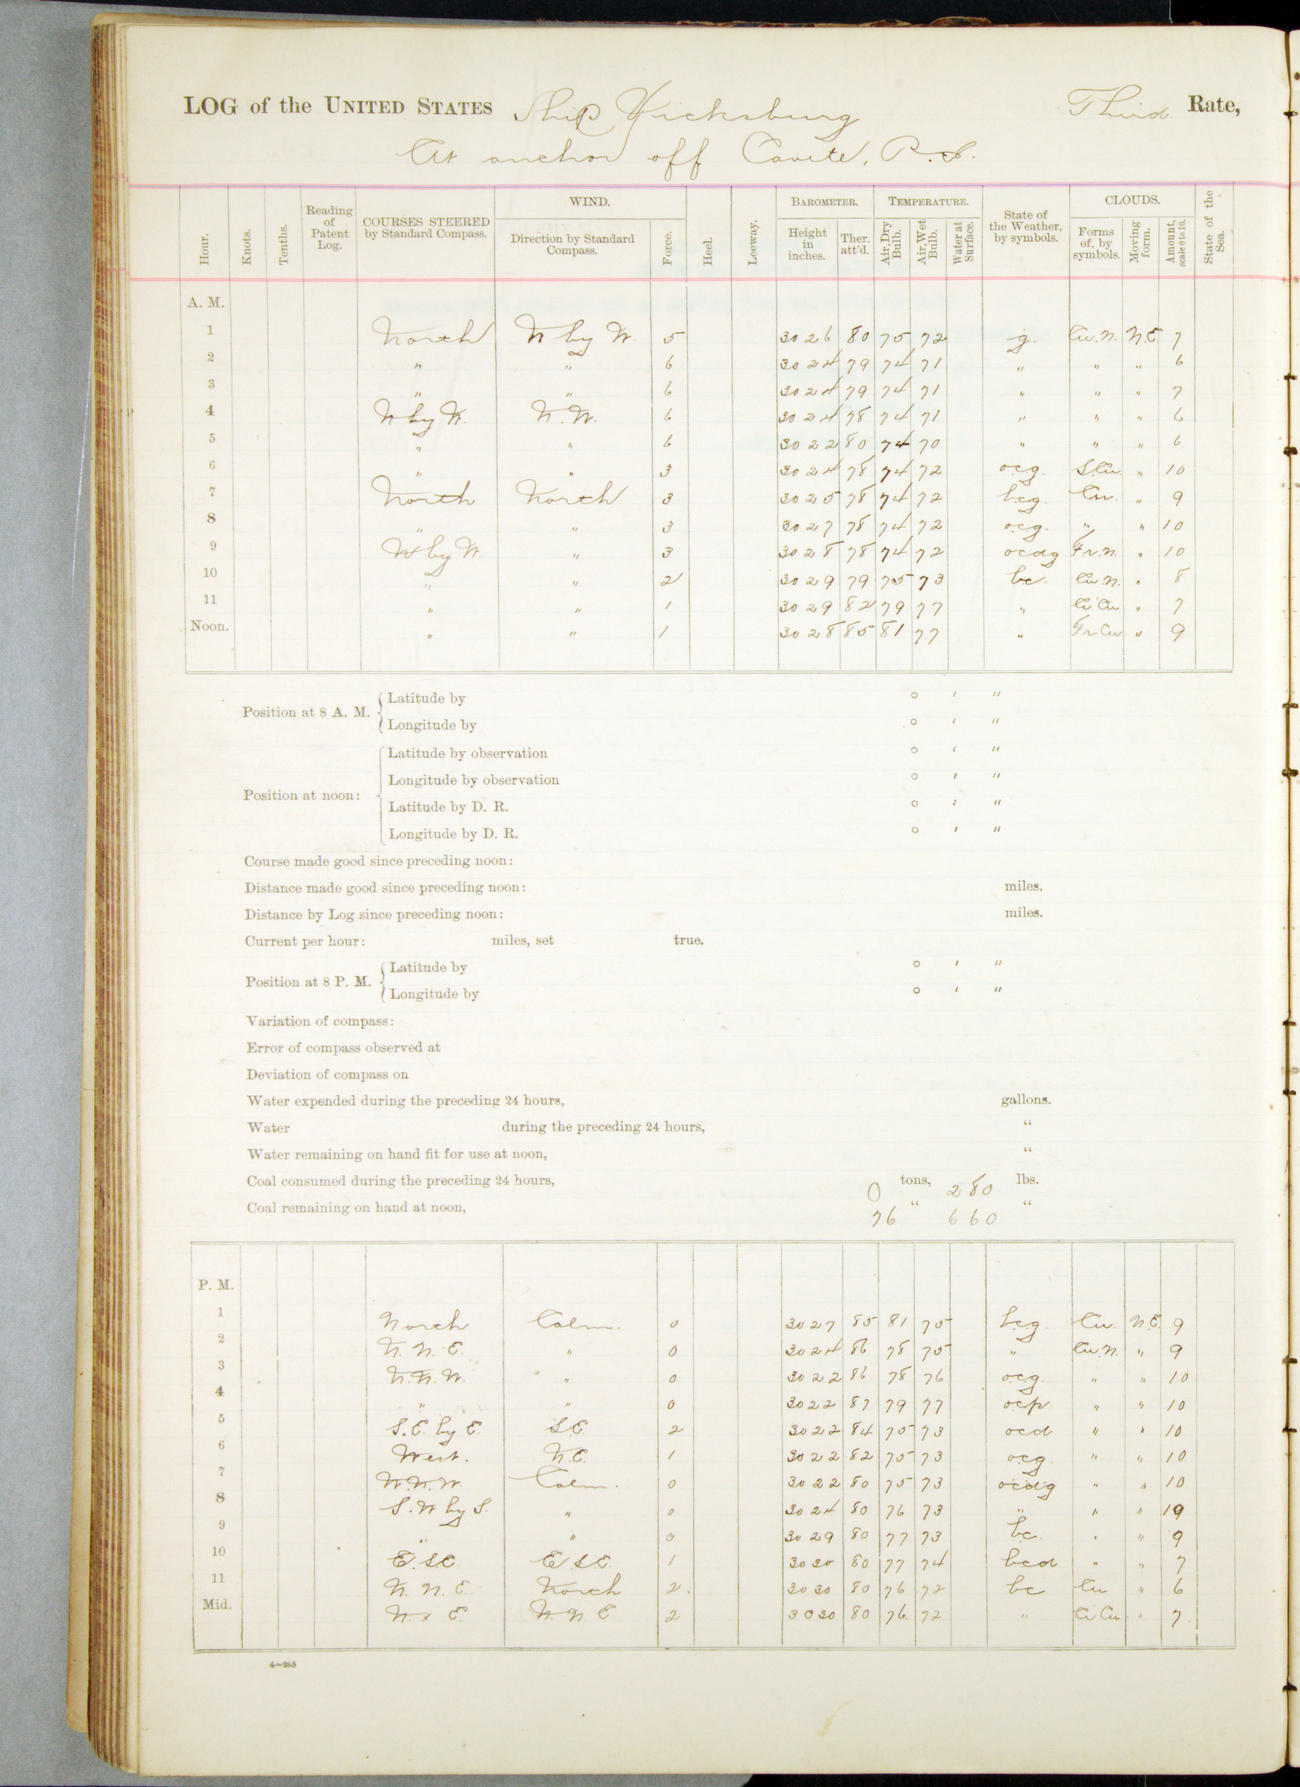 LOG of the UNITED STATES Ship Vicksburg Third Rate,
At anchor off Cavite, P.I.
Hour. Knots. Tenths. Reading of Patent Log. COURSES STEERED by Standard Compass. WIND. Direction by Standard Compass. Force. Heel. Leeway. BAROMETER. Height in inches. Ther. att'd. TEMPERATURE. Air, Dry Bulb. Air, Wet Bulb. Water at Surface. State of the Weather, by symbols. CLOUDS. Forms of, by symbols. Moving form. Amount, scale 0 to 10. State of the Sea.
A. M.
1 North N by W. 5 30 26 80 75 72 g. Cu.N. N.E. 7
2 " " 6 30 24 79 74 71 " " " 6
3 " " 6 30 24 79 74 71 " " " 7
4 N by W. N.W. 6 30 24 78 74 71 " " " 6
5 " " 6 30 22 80 74 70 " " " 6
6 " " 3 30 24 78 74 72 ocg. S.Cu. " 10
7 North North 3 30 25 78 74 72 bcg. Cu. " 9
8 " " 3 30 27 78 74 72 ocg. " " 10
9 N by W. " 3 30 28 78 74 72 ocdg Fr.N. " 10
10 " " 2 30 29 79 75 73 bc. Cu.N. " 8
11 " " 1 30 29 82 79 77 " Ci Cu " 7
Noon. " " 1 30 28 85 81 77 " Fr Cu " 9
Position at 8 A. M. Latitude by ° ′ ″
Longitude by ° ′ ″
Position at noon: Latitude by observation ° ′ ″
Longitude by observation ° ′ ″
Latitude by D. R. ° ′ ″
Longitude by D. R. ° ′ ″
Course made good since preceding noon:
Distance made good since preceding noon: miles.
Distance by Log since preceding noon: miles.
Current per hour: miles, set true.
Position at 8 P. M. Latitude by ° ′ ″
Longitude by ° ′ ″
Variation of compass:
Error of compass observed at
Deviation of compass on
Water expended during the preceding 24 hours, gallons.
Water during the preceding 24 hours, "
Water remaining on hand fit for use at noon, "
Coal consumed during the preceding 24 hours, 0 tons, 280 lbs.
Coal remaining on hand at noon, 76 " 660 "
P. M.
1 North Calm. 0 30 27 85 81 75 bcg. Cu. N.E. 9
2 N. N. E. " 0 30 24 86 78 75 " Cu.N. " 9
3 N.N.W. " 0 30 22 86 78 76 ocg. " " 10
4 " " 0 30 22 87 79 77 ocp. " " 10
5 S.E. by E. S.E. 2 30 22 84 75 73 ocd " " 10
6 West. N.E. 1 30 22 82 75 73 ocg. " " 10
7 W.N.W. Calm. 0 30 22 80 75 73 ocdg " " 10
8 S.W by S. " 0 30 24 80 76 73 " " " 10
9 " " 0 30 29 80 77 73 bc. " " 9
10 E. SE. E. S.E. 1 30 30 80 77 74 bcd " " 7
11 N. N. E. North 2. 30 30 80 76 72 bc Cu " 6
Mid. N. x E. N. N E 2 30 30 80 76 72 " Ci Cu " 7